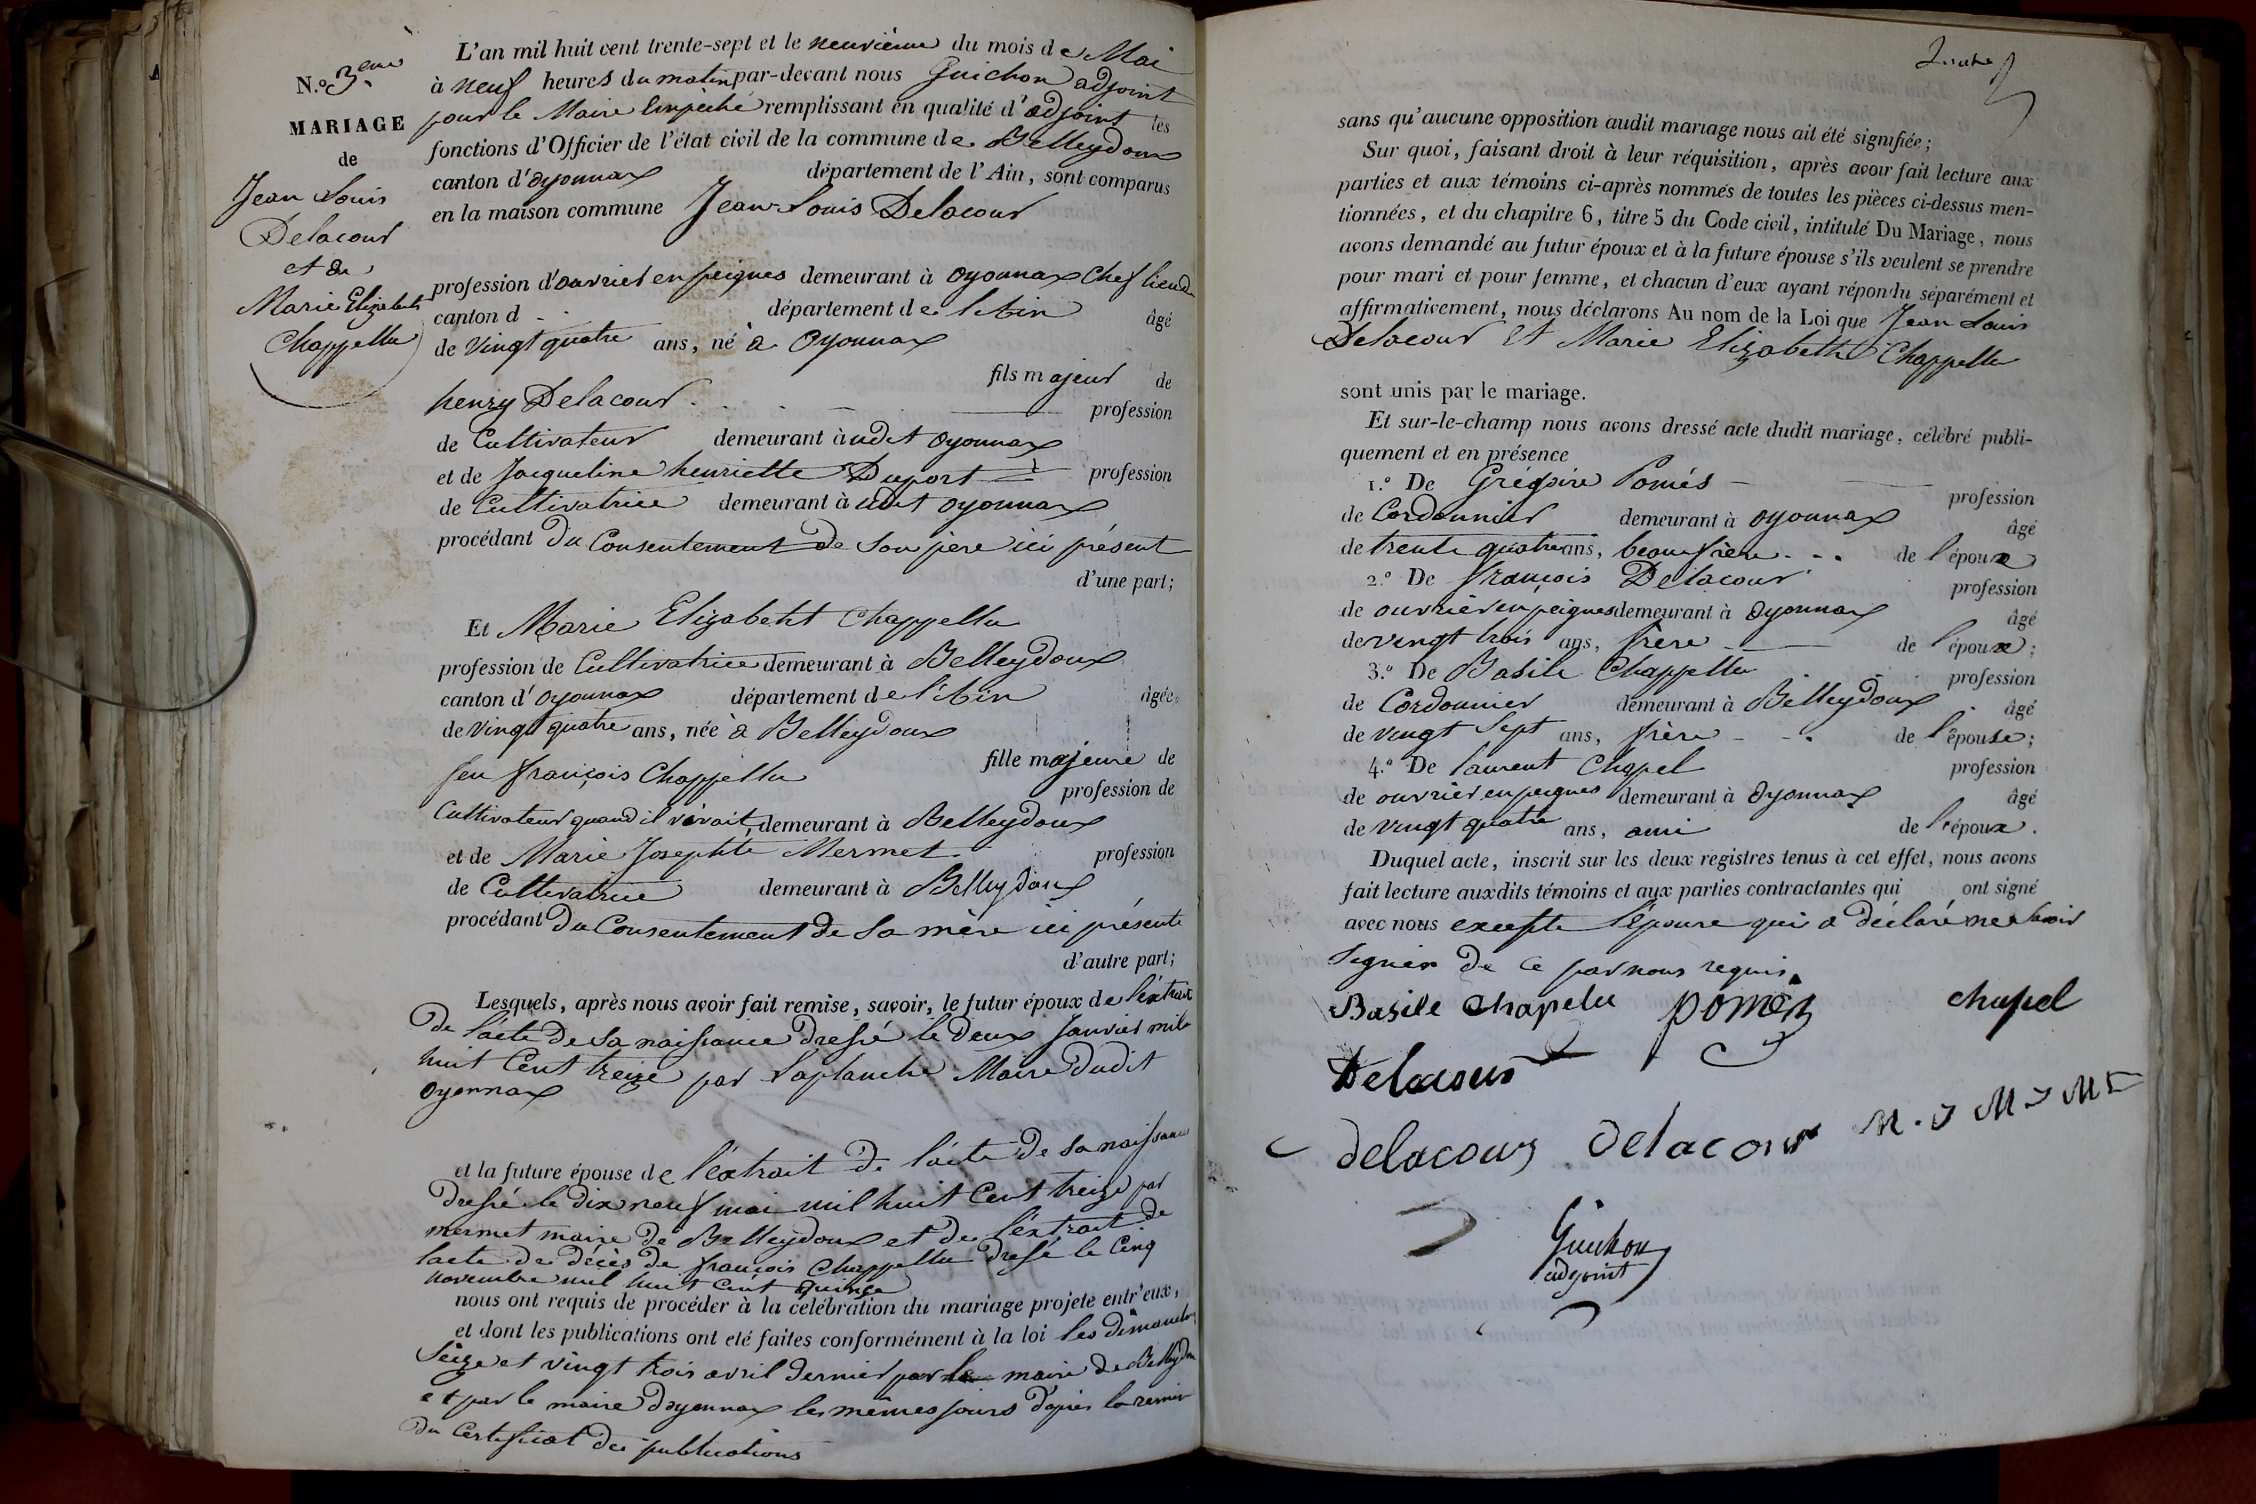 N.º 3.eme
MARIAGE
de
Jean Louis
Delacour
et de
Marie Elizabeth
Chappellu
L'an mil huit cent trente-sept et le neuvième du mois de Mai
à neuf heures du matin par-devant nous Guichon adjoint
pour le Maire Empèché remplissant en qualité d'adjoint les
fonctions d'Officier de l'état civil de la commune de Belleydoux
canton d'oyonnax département de l'Ain, sont comparus
en la maison commune Jean-Louis Delacour
profession d'ouvrier en peignes demeurant à oyonnax Chef lieu de
canton d département de l'Ain âgé
de vingt quatre ans, né à Oyonnax
fils majeur de
henry Delacour profession
de Cultivateur demeurant àudit oyonnax
et de Jacqueline henriette Duport profession
de Cultivatrice demeurant à udit oyonnax
procédant Du Consentement de Son père ici présent
d'une part;
Et Marie Elizabeht Chappellu
profession de Cultivatrice demeurant à Belleydoux
canton d'oyonnax département de l'Ain âgée
de vingt quatre ans, née à Belleydoux
fille majeure de
feu françois Chappellu profession de
Cultivateur quand il vivait, demeurant à Belleydoux
et de Marie Josephte Mermet profession
de Cultivatrice demeurant à Belleydoux
procédant Du Consentement de Sa mère ici présente
d'autre part;
Lesquels, après nous avoir fait remise, savoir, le futur époux de l'éxtrait
De l'acte De Sa naissance Dressé le Deux Janvier mile
huit Cent treize par Laplanche Maire Dudit
oyonnax
et la future épouse de l'éxtrait De l'acte De Sa naissance
Dressé le Dix neuf mai mil huit Cent treize par
mermet maire De Belleydoux et De l'éxtrait de
lacte de décès De françois Chappellu Dressé le Cinq
novembre mil huit Cent quinze
nous ont requis de procéder à la célébration du mariage projeté entr'eux,
et dont les publications ont été faites conformément à la loi les dimanches
Seize et vingt trois avril dernier par le maire De Belleydoux
et par le maire Doyonnax les mêmes jours D'après la remise
Du Certificat des publications
sans qu'aucune opposition audit mariage nous ait été signifiée;
Sur quoi, faisant droit à leur réquisition, après avoir fait lecture aux
parties et aux témoins ci-après nommés de toutes les pièces ci-dessus men-
tionnées, et du chapitre 6, titre 5 du Code civil, intitulé Du Mariage, nous
avons demandé au futur époux et à la future épouse s'ils veulent se prendre
pour mari et pour femme, et chacun d'eux ayant répondu séparément et
affirmativement, nous déclarons Au nom de la Loi que Jean Louis
Delacour Et Marie Elizabeth Chappellu
sont unis par le mariage.
Et sur-le-champ nous avons dressé acte dudit mariage, célébré publi-
quement et en présence
1.º De Grégoire Pomés profession
de Cordonnier demeurant à oyonnax âgé
de trente quatre ans, beaufrère de l'époux
2.º De françois Delacour profession
de ouvrier en peignes demeurant à Oyonnax âgé
de vingt trois ans, frère de l'époux;
3.º De Basile Chappellu profession
de Cordonnier demeurant à Belleydoux âgé
de vingt Sept ans, frère de l'épouse;
4.º De laurent Chapel profession
de ouvrier en peignes demeurant à Oyonnax âgé
de vingt quatre ans, ami de l'époux.
Duquel acte, inscrit sur les deux registres tenus à cet effet, nous avons
fait lecture auxdits témoins et aux parties contractantes qui ont signé
avec nous excepte l'épouse qui a déclaré ne savoir
Signer De Ce par nous requis
Basile Chapelu pomés chapel
Delacour
delacour delacour M. J M J MT
Guichon
adjoint